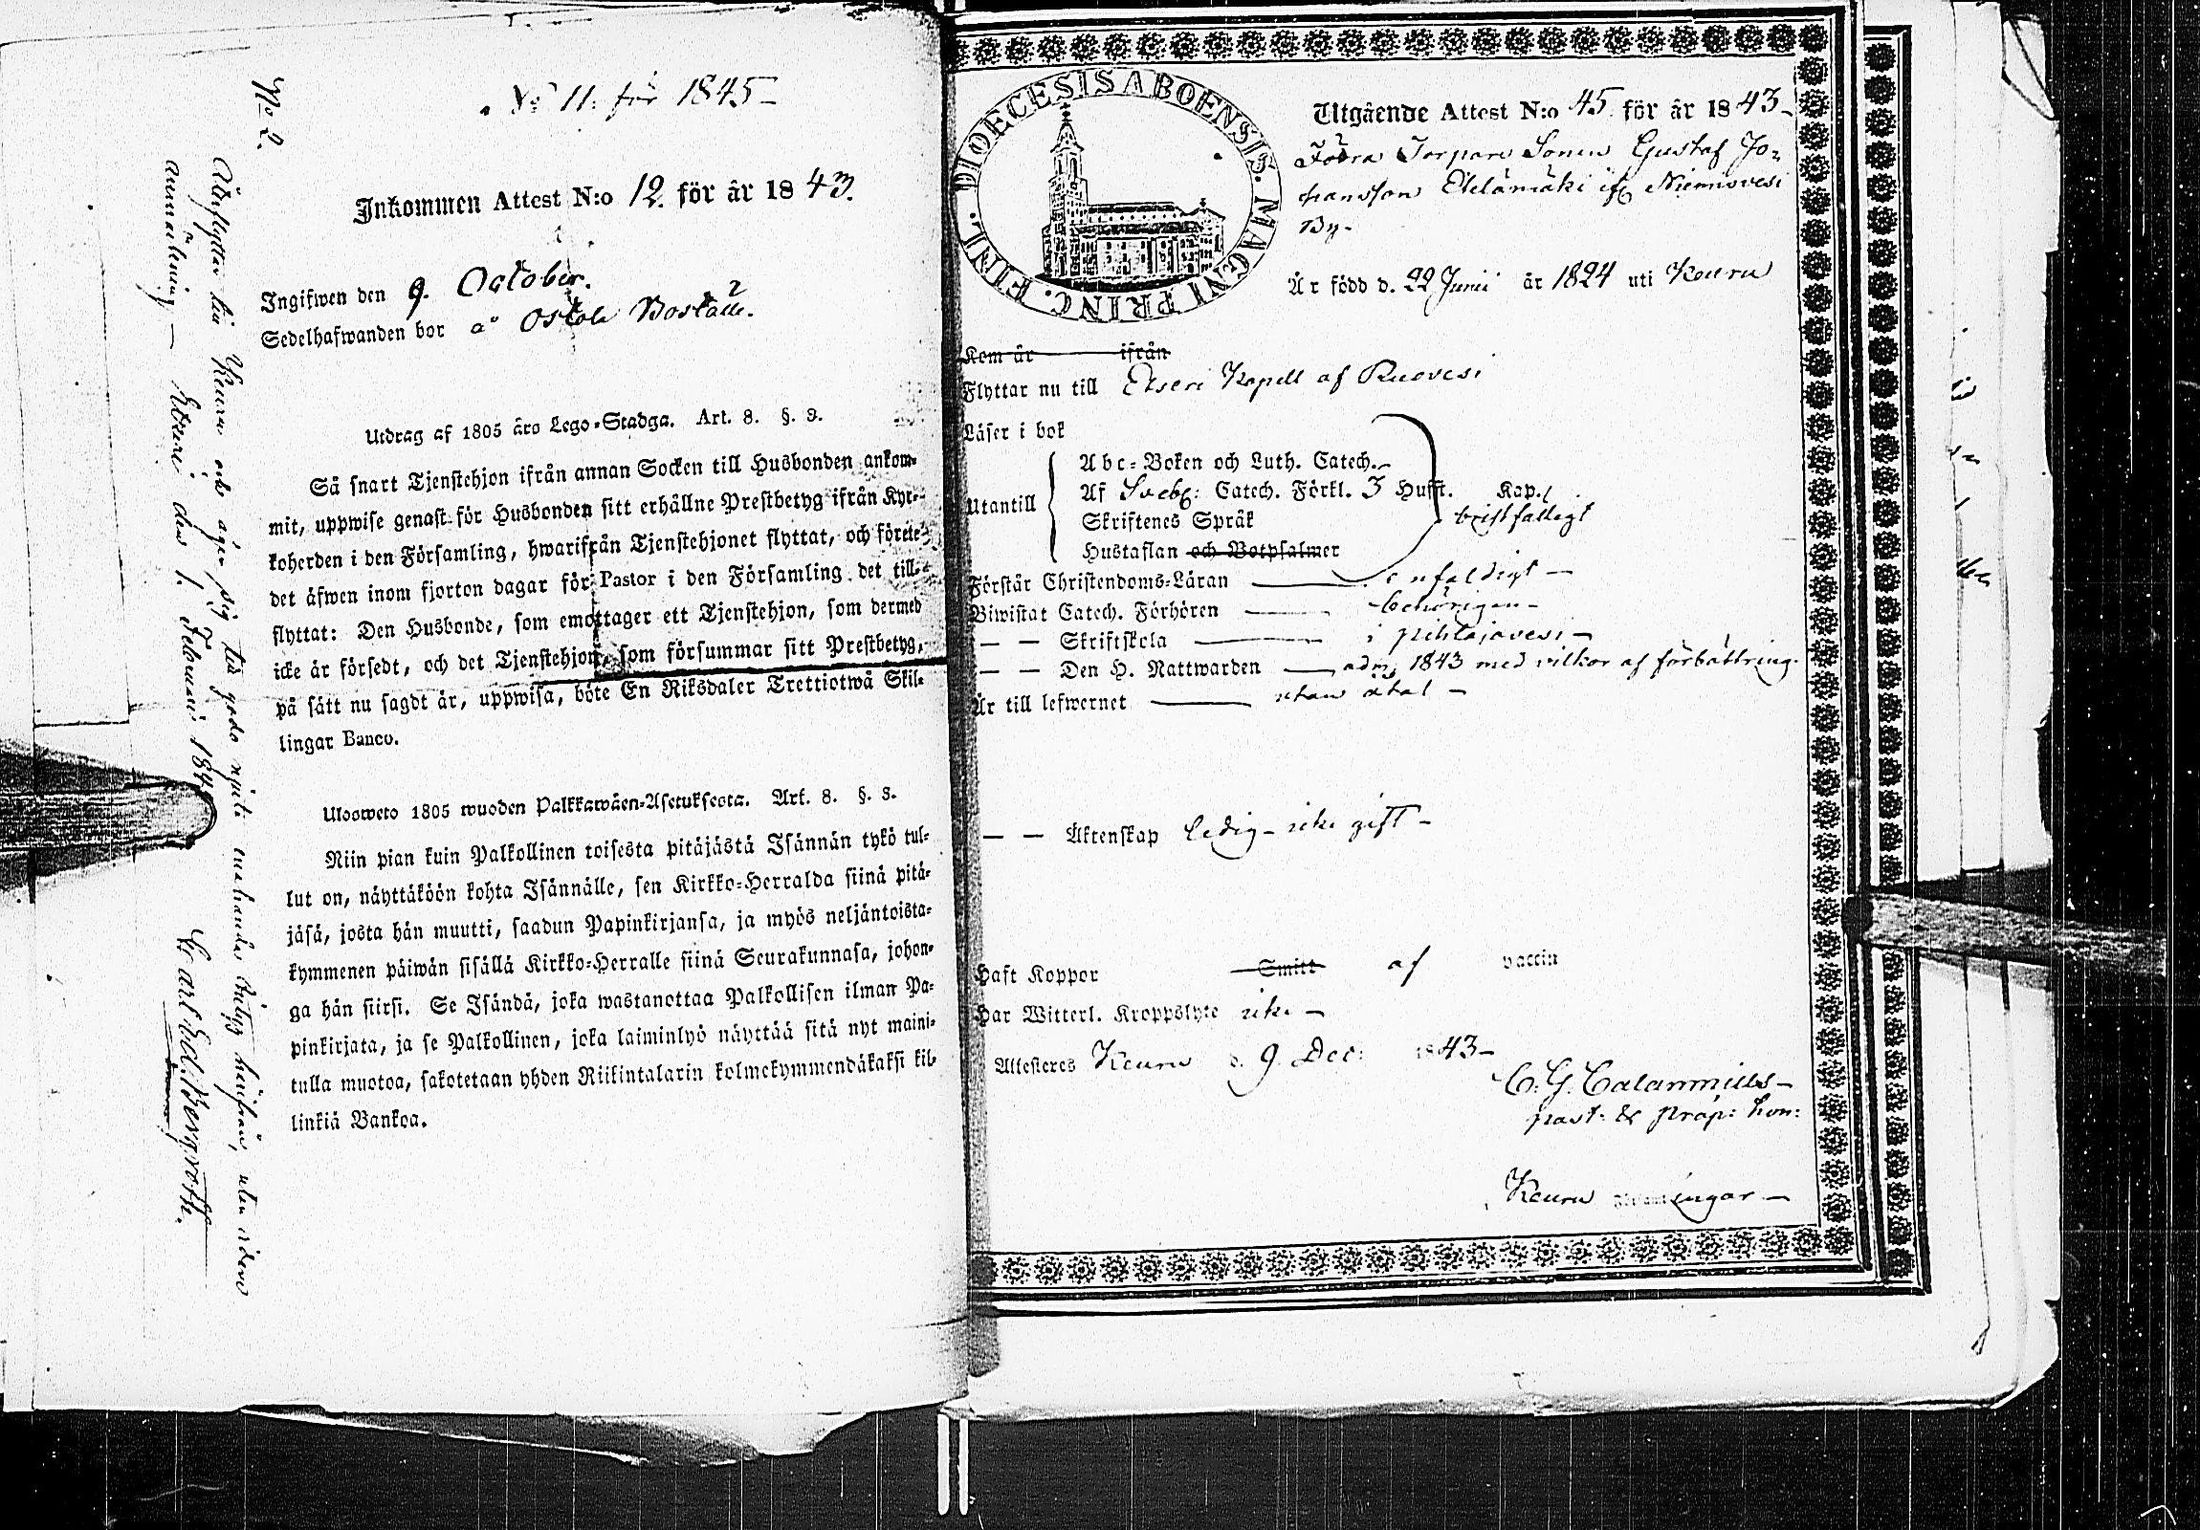 No 11. för 1845
Inkommen Attest N:o 12. för år 1843.
Ingifwen den 9. October.
Sedelhafwanden bor å Ostola Boställe.
Utdrag af 1805 års Lego-Stadga. Art. 8. §. 3.
Så snart Tjenstehjon ifrån annan Socken till Husbonden ankom-
mit, uppwise genast för Husbonden sitt erhållne Prestbetyg ifrån Kyr-
koherden i den Församling, hwarifrån Tjenstehjonet flyttat, och förete
det äfwen inom fjorton dagar för Pastor i den Församling det till-
flyttat: Den Husbonde, som emottager ett Tjenstehjon, som dermed
icke är försedt, och det Tjenstehjon, som försummar sitt Prestbetyg,
på sätt nu sagdt är, uppwisa, böte En Riksdaler Trettiotwå Skil-
lingar Banco.
Ulosweto 1805 wuoden Palkkawäen-Asetuksesta. Art. 8. §. 3.
Niin pian kuin Palkollinen toisesta pitäjästä Isännän tykö tul-
lut on, näyttäköön kohta Isännälle, sen Kirkko-Herralda siinä pitä-
jäsä, josta hän muutti, saadun Papinkirjansa, ja myös neljäntoista-
kymmenen päiwän sisällä Kirkko-Herralle siinä Seurakunnasa, johon-
ga hän siirsi. Se Isändä, joka wastanottaa Palkollisen ilman Pa-
pinkirjata, ja se Palkollinen, joka laiminlyö näyttää sitä nyt maini-
tulla muotoa, sakotetaan yhden Riikintalarin kolmekymmendäkaksi kil-
linkiä Bankoa.
No 2.
Återflyttar till Keuru och äger sig till godo njuta enahanda betyg härifrån, utan vidare
anmärkning — Etseri den 1. Februarii 184
Carl Ed. Bergroth.
DIOECESIS ABOENSIS. MAGNI PRINC. FINL.
Utgående Attest N:o 45 för år 1843
Torpare Sonen Gustaf Jo-
hansson Etelämäki if Niemisvesi
By
Är född d. 22 Junii år 1824 uti Keuru
Kom år ifrån
Flyttar nu till Etseri Kapell af Ruovesi
Läser i bok
Abc-Boken och Luth. Catech.
Utantill
Af Svebg: Catech. Förkl. 3 Hufst. Kap.
Skriftenes Språk
bristfälligt
Hustaflan och Botpsalmer
Förstår Christendoms-Läran enfaldigt
Biwistat Catech. Förhören behörigen
— — Skriftskola i pihlajavesi
— — Den H. Nattwarden adm: 1843 med vilkor af förbättring.
Är till lefwernet utan åtal
— — Äktenskap ledig icke gift
Haft Koppor Smitt af vaccin
Har Witterl. Kroppslyte icke
Attesteres Keuru d. 9. Dec: 1843
C. G. Calamnius
past: & præp: hon:
Keuru